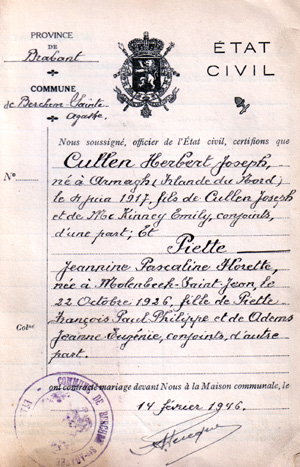 PROVINCE
DE
Brabant
COMMUNE
de Berchem-Sainte-
Agathe.
ÉTAT
CIVIL
Nous soussigné, officier de l'État civil, certifions que
Cullen Herbert Joseph,
N°
né à Armagh (Irlande du Nord)
le 4 juin 1917, fils de Cullen Joseph
et de Mc Kinney Emily, conjoints,
d'une part; Et
Piette
Jeannine Pascaline Florette,
née à Molenbeek-Saint-Jean, le
22 Octobre 1926, fille de Piette
François Paul Philippe et de Adems
Jeanne Eugénie, conjoints, d'autre
part.
ont contracté mariage devant Nous à la Maison communale, le
14 février 1946.
COMMUNE DE BERCHEM